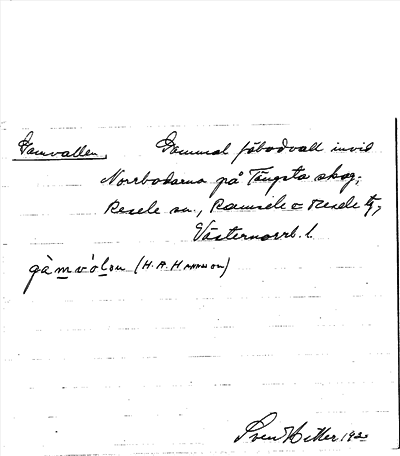 Gamvallen, Gammal fäbodvall invid
Norrbodarna på Tängsta skog,
Resele sn., Ramsele o Resele tg,
Västernorrl. l.
(H.A.Hansson)
Sven 1920